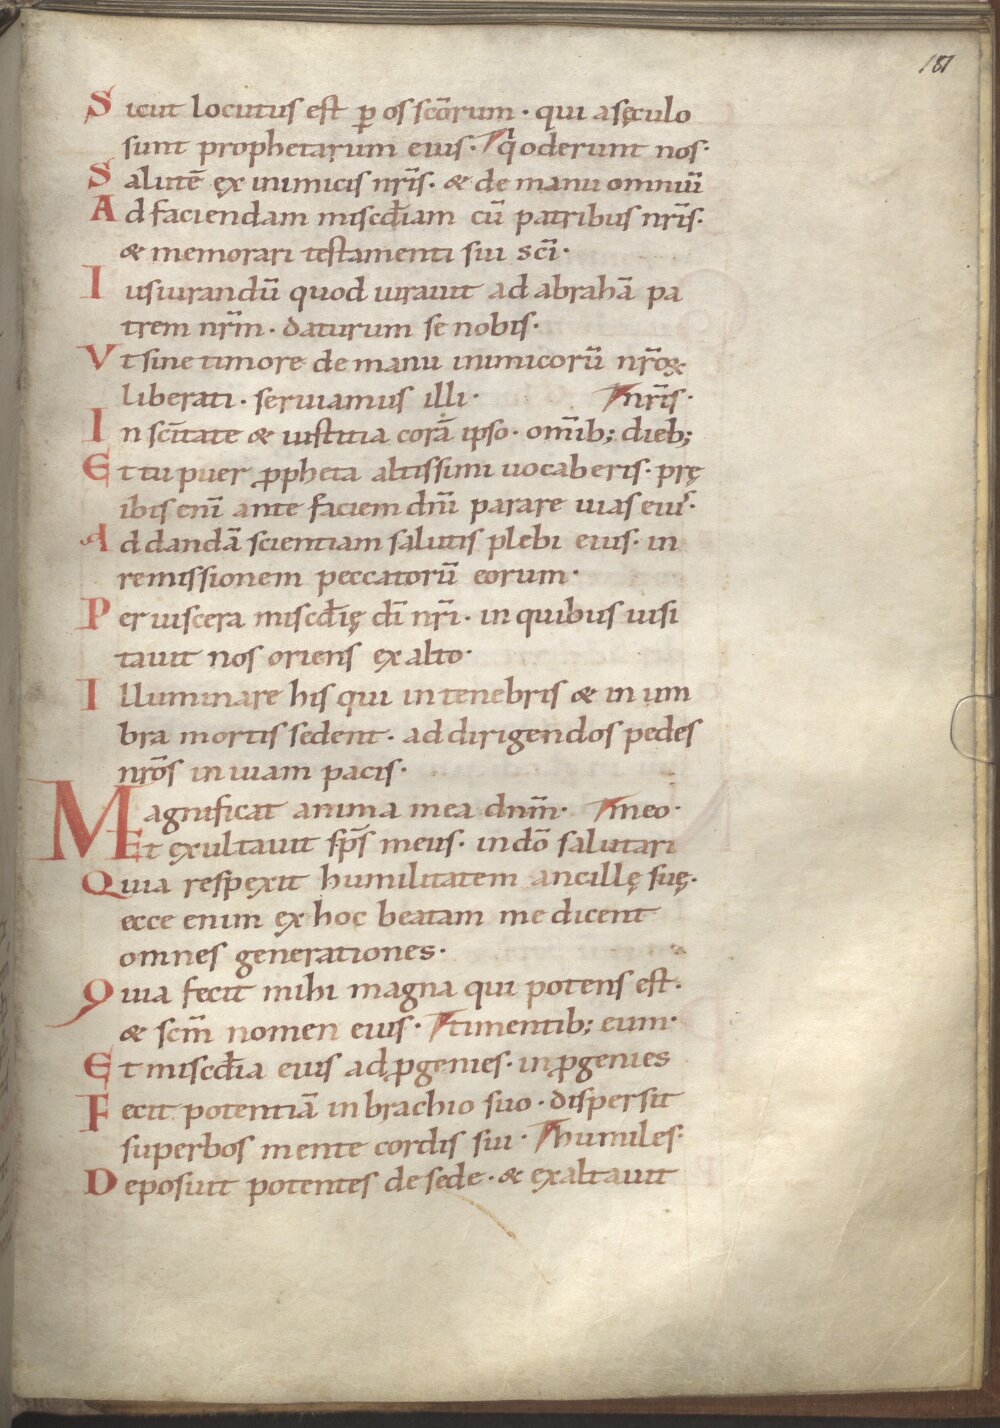 181
Sicut locutus est ꝑ os scõrum · qui a sęculo
sunt prophetarum eius · q̇ oderunt nos ·
Salutē ex inimicis nr̄is · & de manu omniū
Ad faciendam misc̄diam cū patribus nr̄is ·
& memorari testamenti sui sc̄i ·
Iusiurandū quod iurauit ad abrahā pa
trem nr̄m · daturum se nobis ·
Vt sine timore de manu inimicorū nr̄oꝝ
liberati · seruiamus illi · nr̄is ·
In sc̄itate & iustitia corā ipso · om̄ib; dieb;
Et tu puer ꝓpheta altissimi uocaberis · prę
ibis eni̅ ante faciem dn̄i parare uias eius ·
Ad dandā scientiam salutis plebi eius · in
remissionem peccatorū eorum ·
Per uiscera misc̄dię dī nr̄i · in quibus uisi
tauit nos oriens ex alto ·
Illuminare his qui in tenebris & in um
bra mortis sedent · ad dirigendos pedes
nr̄os in uiam pacis ·
Magnificat anima mea dnm̄ · meo ·
Et exultauit sp̄s meus · in dō salutari
Quia respexit humilitatem ancillę suę ·
ecce enim ex hoc beatam me dicent
omnes generationes ·
Quia fecit mihi magna qui potens est ·
& scm̄ nomen eius · timentib; eum ·
Et misc̄dia eius ad ꝓgenies · in ꝓgenies
Fecit potentiā in brachio suo · dispersit
superbos mente cordis sui · humiles ·
Deposuit potentes de sede · & exaltauit